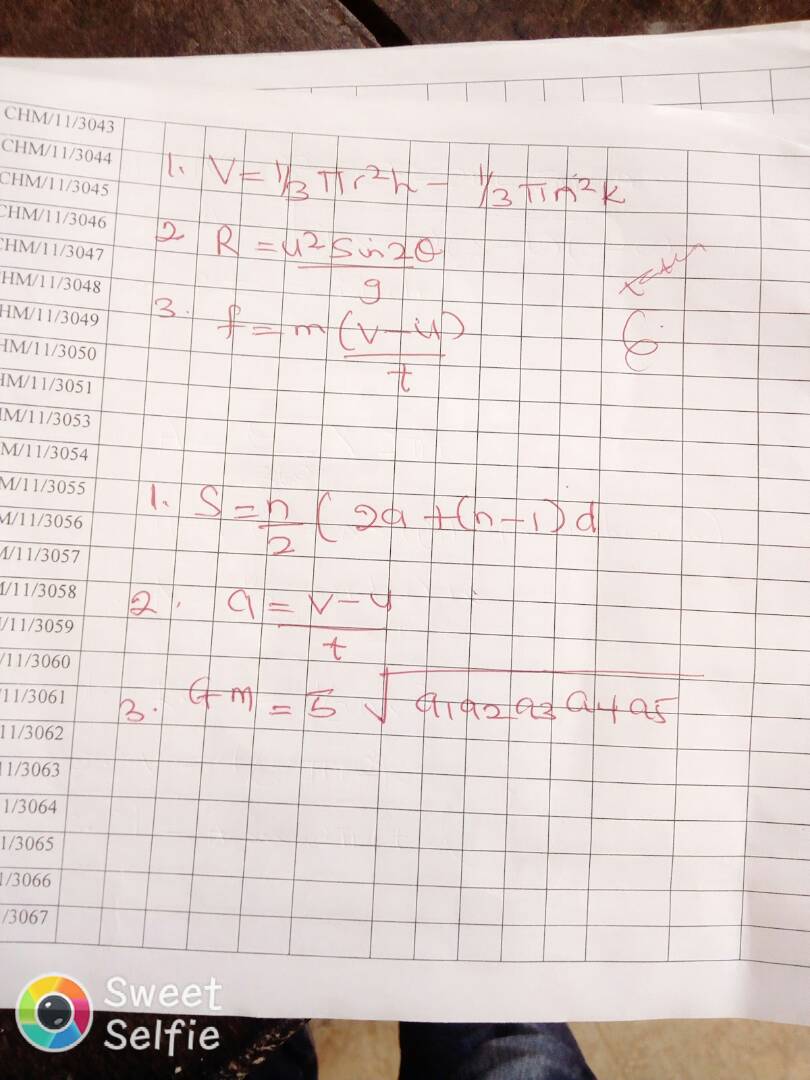 CHM/11/3043
CHM/11/3044
CHM/11/3045
CHM/11/3046
CHM/11/3047
HM/11/3048
HM/11/3049
HM/11/3050
HM/11/3051
HM/11/3053
M/11/3054
M/11/3055
M/11/3056
M/11/3057
/11/3058
/11/3059
/11/3060
/11/3061
11/3062
11/3063
1/3064
1/3065
1/3066
/3067
1. V = 1/3 πr²h − 1/3 πr²k
2 R = u² Sin2θ
g
3. f = m (v − u)
t
1. S = n/2 ( 2a + (n − 1) d
2. a = v − u
t
3. Gm = 5 √a1a2a3a4a5
Sweet
Selfie